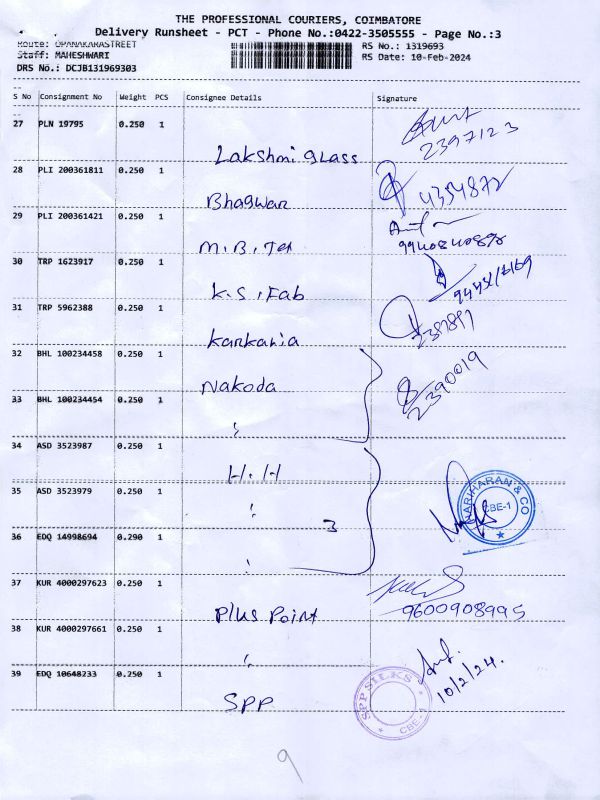 THE PROFESSIONAL COURIERS, COIMBATORE
Delivery Runsheet - PCT - Phone No.:0422-3505555 - Page No.:3
Route: OPANAKARASTREET
RS No.: 1319693
Staff: MAHESHWARI
RS Date: 10-Feb-2024
DRS No.: DCJB131969303
S No Consignment No Weight PCS Consignee Details Signature
27 PLN 19795 0.250 1
Lakshmi glass
2397123
28 PLI 200361811 0.250 1
Bhagwan
4354872
29 PLI 200361421 0.250 1
M.B.Tex
30 TRP 1623917 0.250 1
K.S.Fab
31 TRP 5962388 0.250 1
Karkania
32 BHL 100234458 0.250 1
Nakoda
2390019
33 BHL 100234454 0.250 1
34 ASD 3523987 0.250 1
H.H
35 ASD 3523979 0.250 1
3
HARIHARAN & CO
CBE-1
36 EDQ 14998694 0.290 1
37 KUR 4000297623 0.250 1
Plus Point
9600908995
38 KUR 4000297661 0.250 1
39 EDQ 10648233 0.250 1
SPP
10/2/24.
SPP SILKS
CBE-1
9